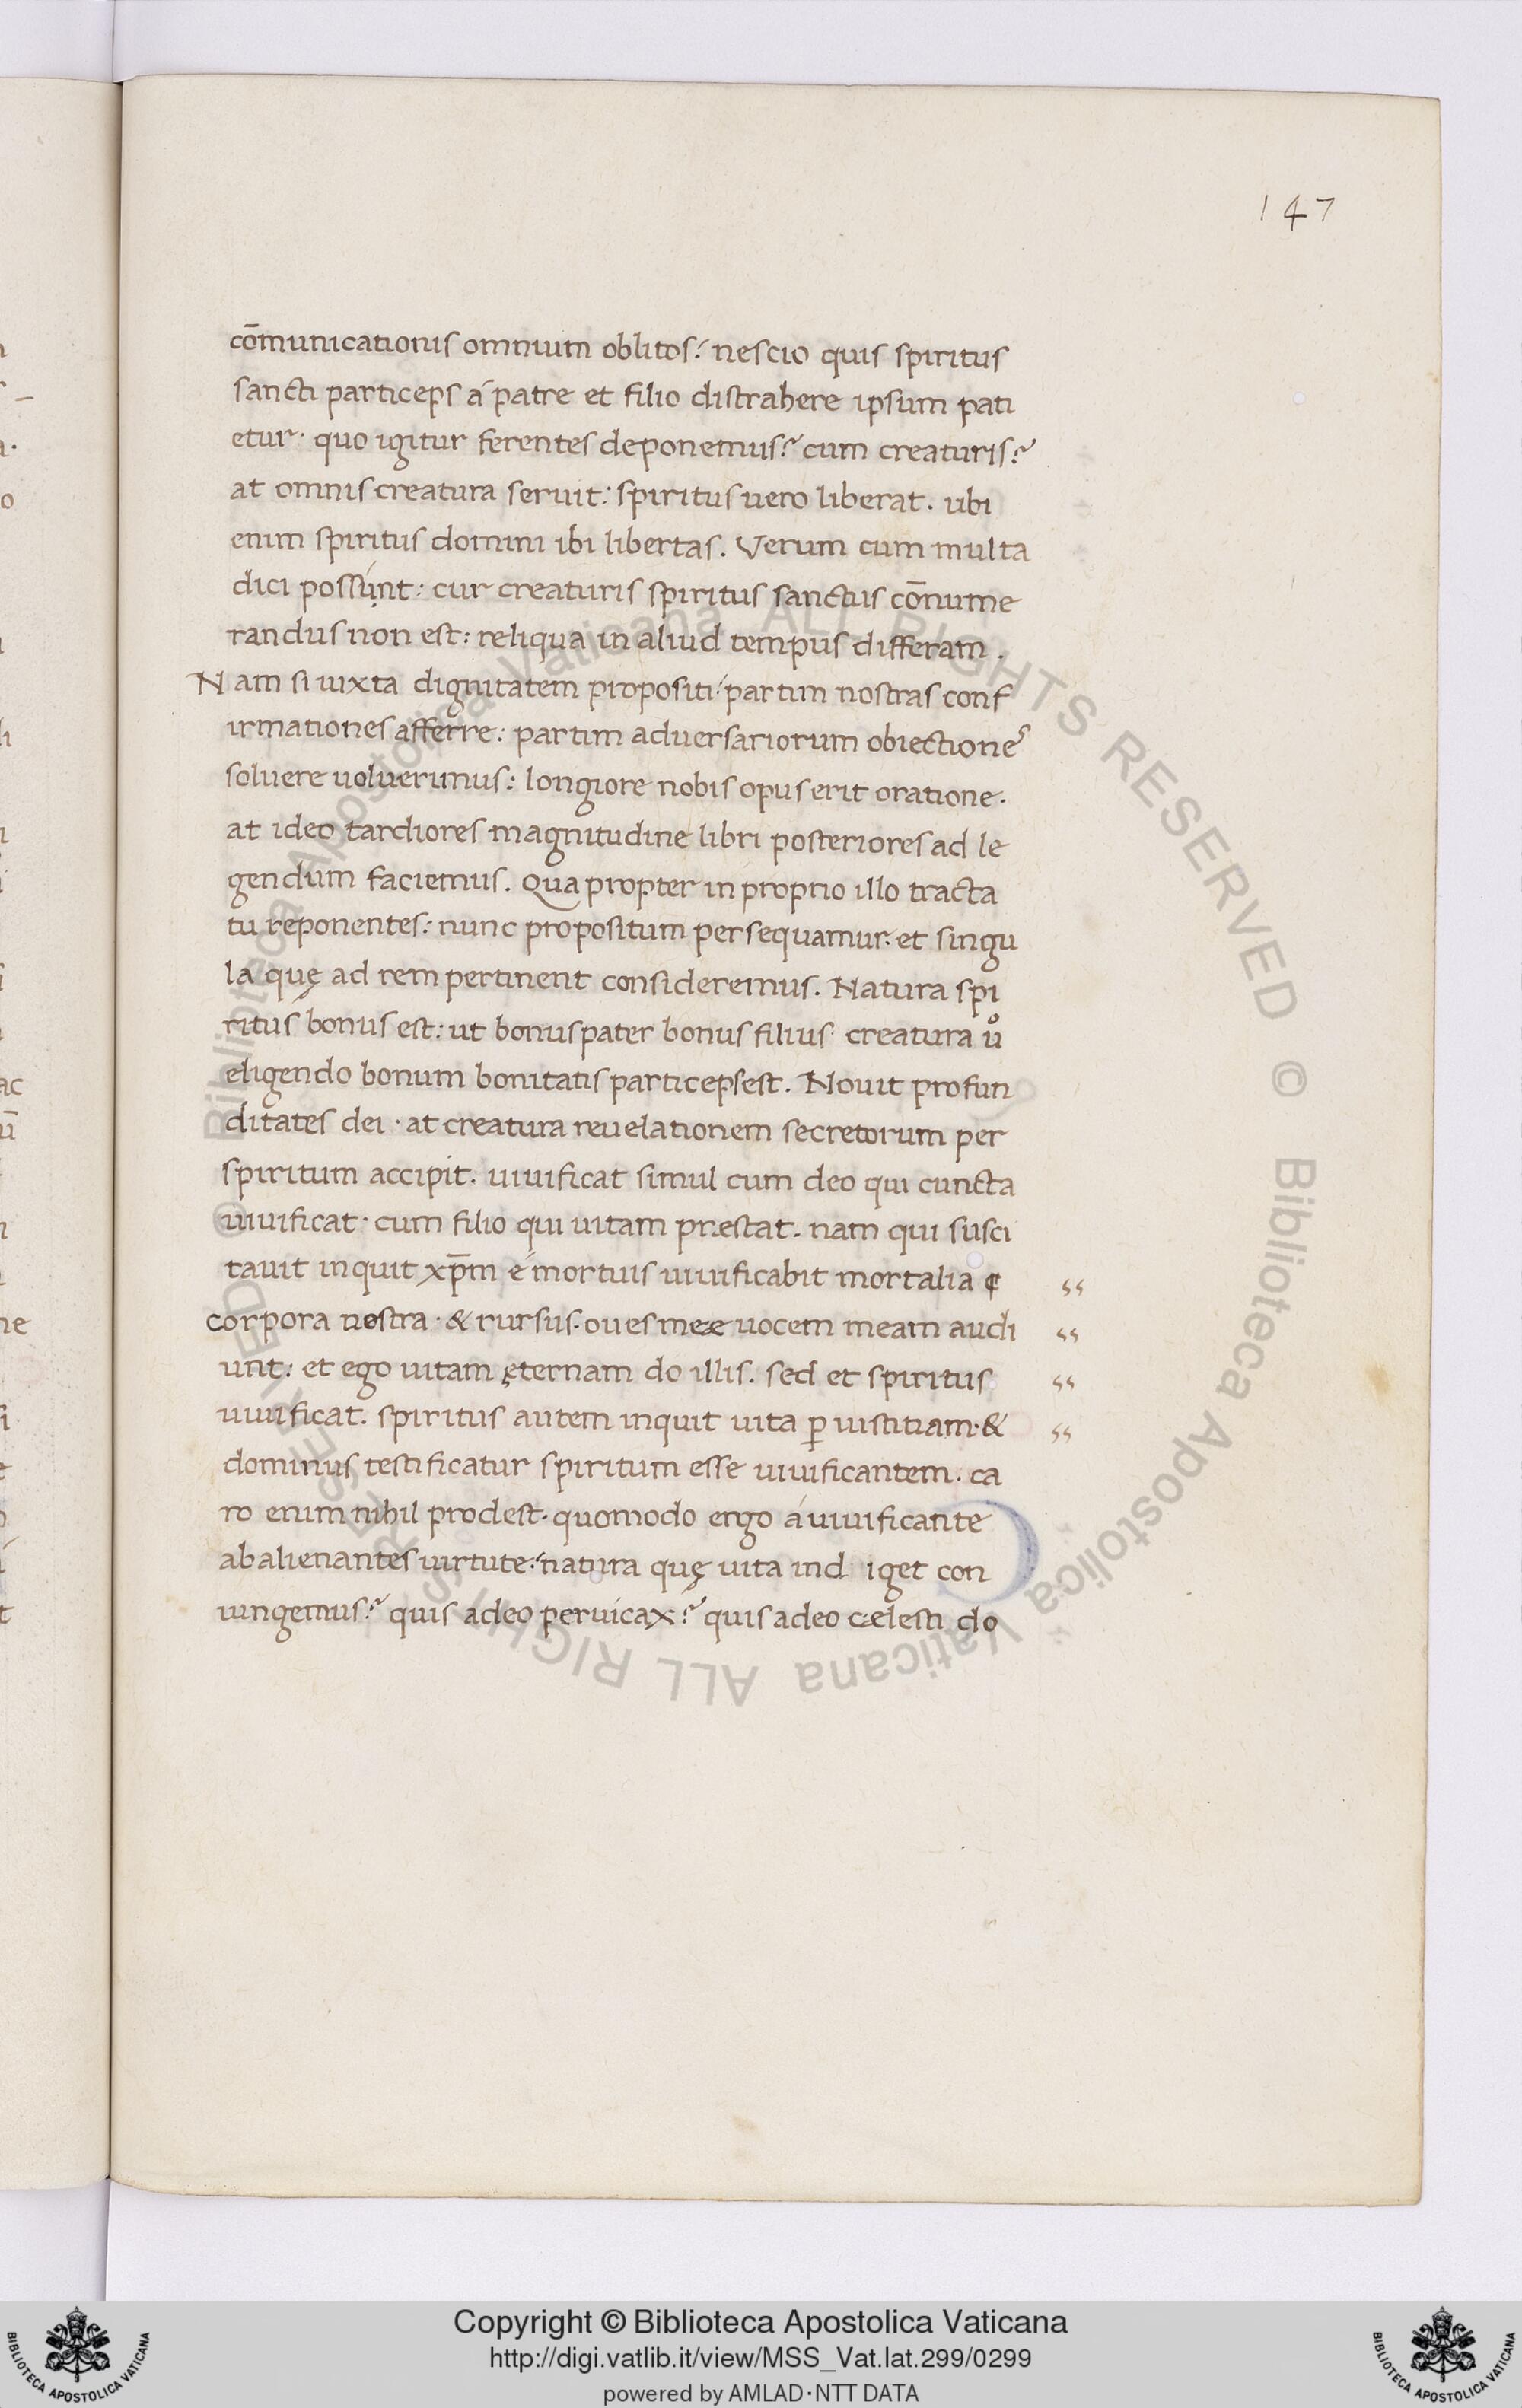 147
cōmunicationis omnium oblitos? nescio quis spiritus
sancti particeps á patre et filio distrahere ipsum pati
etur· quo igitur ferentes deponemus? cum creaturis?
at omnis creatura seruit: spiritus uero liberat. ubi
enim spiritus domini ibi libertas. Verum cum multa
dici possụ́nt: cur creaturis spiritus sanctus cōnume
randus non est: reliqua in aliud tempus differam.
Nam si iuxta dignitatem propositi: partim nostras conf
irmationes afferre: partim aduersariorum obiectiones
soluere uoluerimus: longiore nobis opus erit oratione.
at ideo tardiores magnitudine libri posteriores ad le
gendum faciemus. Quapropter in proprio illo tracta
tu reponentes: nunc propositum persequamur. et singu
la quę ad rem pertinent consideremus. Natura spi
ritus bonus est: ut bonus pater bonus filius· creatura uͦ
eligendo bonum bonitatis particeps est. Nouit profun
ditates dei· at creatura reuelationem secretorum per
spiritum accipit. uiuificat simul cum deo qui cuncta
uiuificat· cum filio qui uitam prestat. nam qui susci
tauit inquit xp̄m é mortuis uiuificabit mortalia ¢ "
corpora nostra· & rursus· oues meæ uocem meam audi "
unt: et ego uitam ęternam do illis. sed et spiritus "
uiuificat. spiritus autem inquit uita ꝑ iustitiam· & "
dominus testificatur spiritum esse uiuificantem. ca
ro enim nihil prodest· quomodo ergo á uiuificante
abalienantes uirtute: natura quę uita ind iget con
iungemus? quis adeo peruicax? quis adeo cælesti do
© Biblioteca Apostolica Vaticana ALL RIGHTS RESERVED © Biblioteca Apostolica Vaticana ALL RIGHTS RESERVED
Copyright © Biblioteca Apostolica Vaticana
http://digi.vatlib.it/view/MSS_Vat.lat.299/0299
powered by AMLAD·NTT DATA
BIBLIOTECA APOSTOLICA VATICANA
BIBLIOTECA APOSTOLICA VATICANA